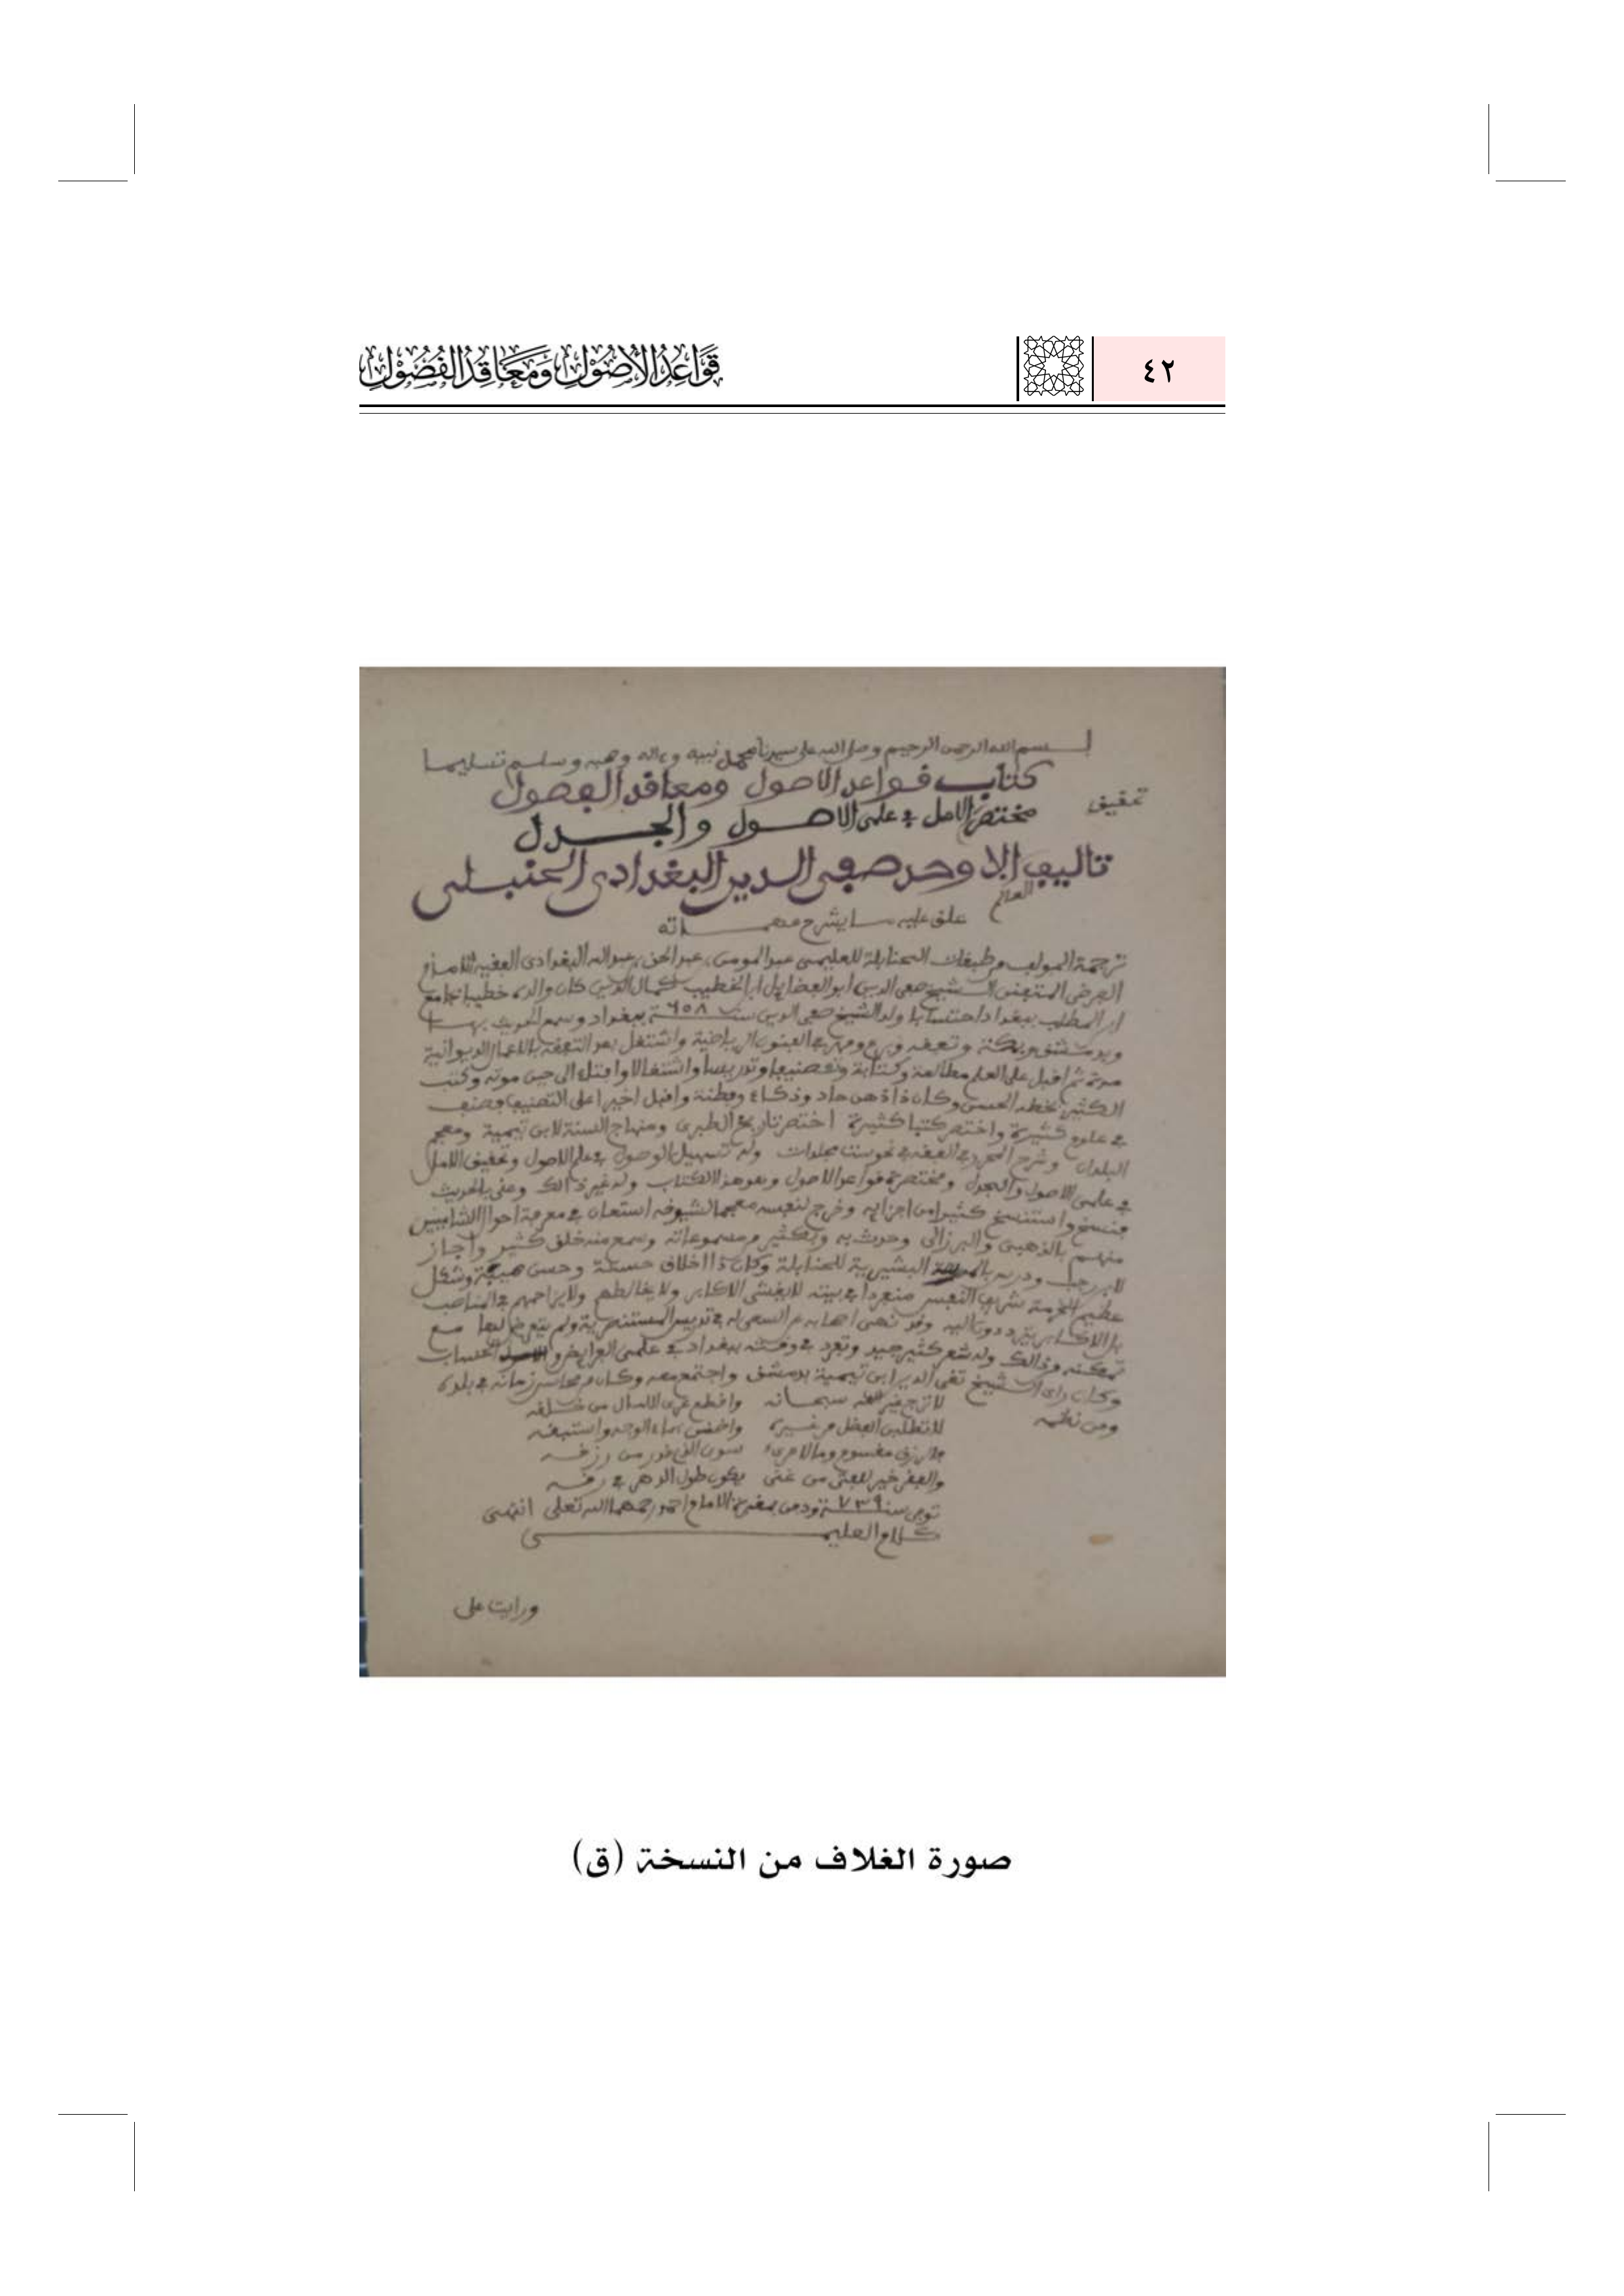 ٤٢
قَوَاعِدُ الأُصُولِ وَمَعَاقِدُ الفُصُولِ
بسم الله الرحمن الرحيم وصلى الله على سيدنا محمد نبيه وءاله وصحبه وسلم تسليما
كتاب قواعد الاصول ومعاقد الفصول
تحقيق
مختصر الامل في علمي الاصول والجدل
تاليف الاوحد صفي الدين البغدادي الحنبلي
العالم
علق عليه ما يشرح مهماته
ترجمة المولف من طبقات الحنابلة للعليمي عبد المومن بن عبد الحق بن عبد الله البغدادي الفقيه الامام
الفرضي المتفنن الشيخ صفي الدين ابو الفضايل ابن الخطيب كمال الدين كان والده خطيبا بجامع
ابن المطلب ببغداد احتسابا ولد الشيخ صفي الدين سنة ٦٥٨ ببغداد وسمع الحديث بها
وبدمشق وبمكة وتفقه وبرع ومهر في الفنون الرياضية واشتغل بعد التفقه بالاعمال الديوانية
مدة ثم اقبل على العلم مطالعة وكتابة وتصنيفا وتدريسا واشتغالا وافتاء الى حين موته وكتب
الكثير بخطه الحسن وكان ذا ذهن حاد وذكاء وفطنة واقبل اخيرا على التصنيف فصنف
في علوم كثيرة واختصر كتبا كثيرة اختصر تاريخ الطبري ومنهاج السنة لابن تيمية ومعجم
البلدان وشرح المحرر في الفقه في نحو ست مجلدات وله تسهيل الوصول في علم الاصول وتحقيق الامل
في علمي الاصول والجدل ومختصره قواعد الاصول وهو هذا الكتاب وله غير ذالك وعني بالحديث
فنسخ واستنسخ كثيرا من اجزايه وخرج لنفسه معجما لشيوخه استعان في معرفة احوال الشاميين
منهم بالذهبي والبرزالي وحدث به وبكثير من مسموعاته وسمع منه خلق كثير واجاز
لابن رجب ودرس البشيرية للحنابلة وكان ذا اخلاق حسنة وحسن هيبة وشكل
عظيم الحرمة شريف النفس منفردا في بيته لا يغشى الاكابر ولا يخالطهم ولا يزاحمهم في المناصب
بل الاكابر يترددون اليه وقد نهى اصحابه عن السعي له في تدريس المستنصرية ولم يتعرض لها مع
تمكنه من ذالك وله شعر كثير جيد وتفرد في وقته ببغداد في علمي الفرايض والحساب
وكان راى الشيخ تقي الدين ابن تيمية بدمشق واجتمع معه وكان من محاسن زمانه في بلده
ومن نظمه
لا ترج غير الله سبحانه واقطع عرى الامال من خلقه
لا تطلبن الفضل من غيره واضنن بماء الوجه واستبقه
فالرزق مقسوم وما لامرئ سوى الذي قدر من رزقه
والفقر خير للفتى من غنى يكون طول الدهر في رقه
توفي سنة ٧٣٩ ودفن بمقبرة الامام احمد رحمهما الله تعلى انتهى
كلام العليمي
ورايت على
صورة الغلاف من النسخة (ق)